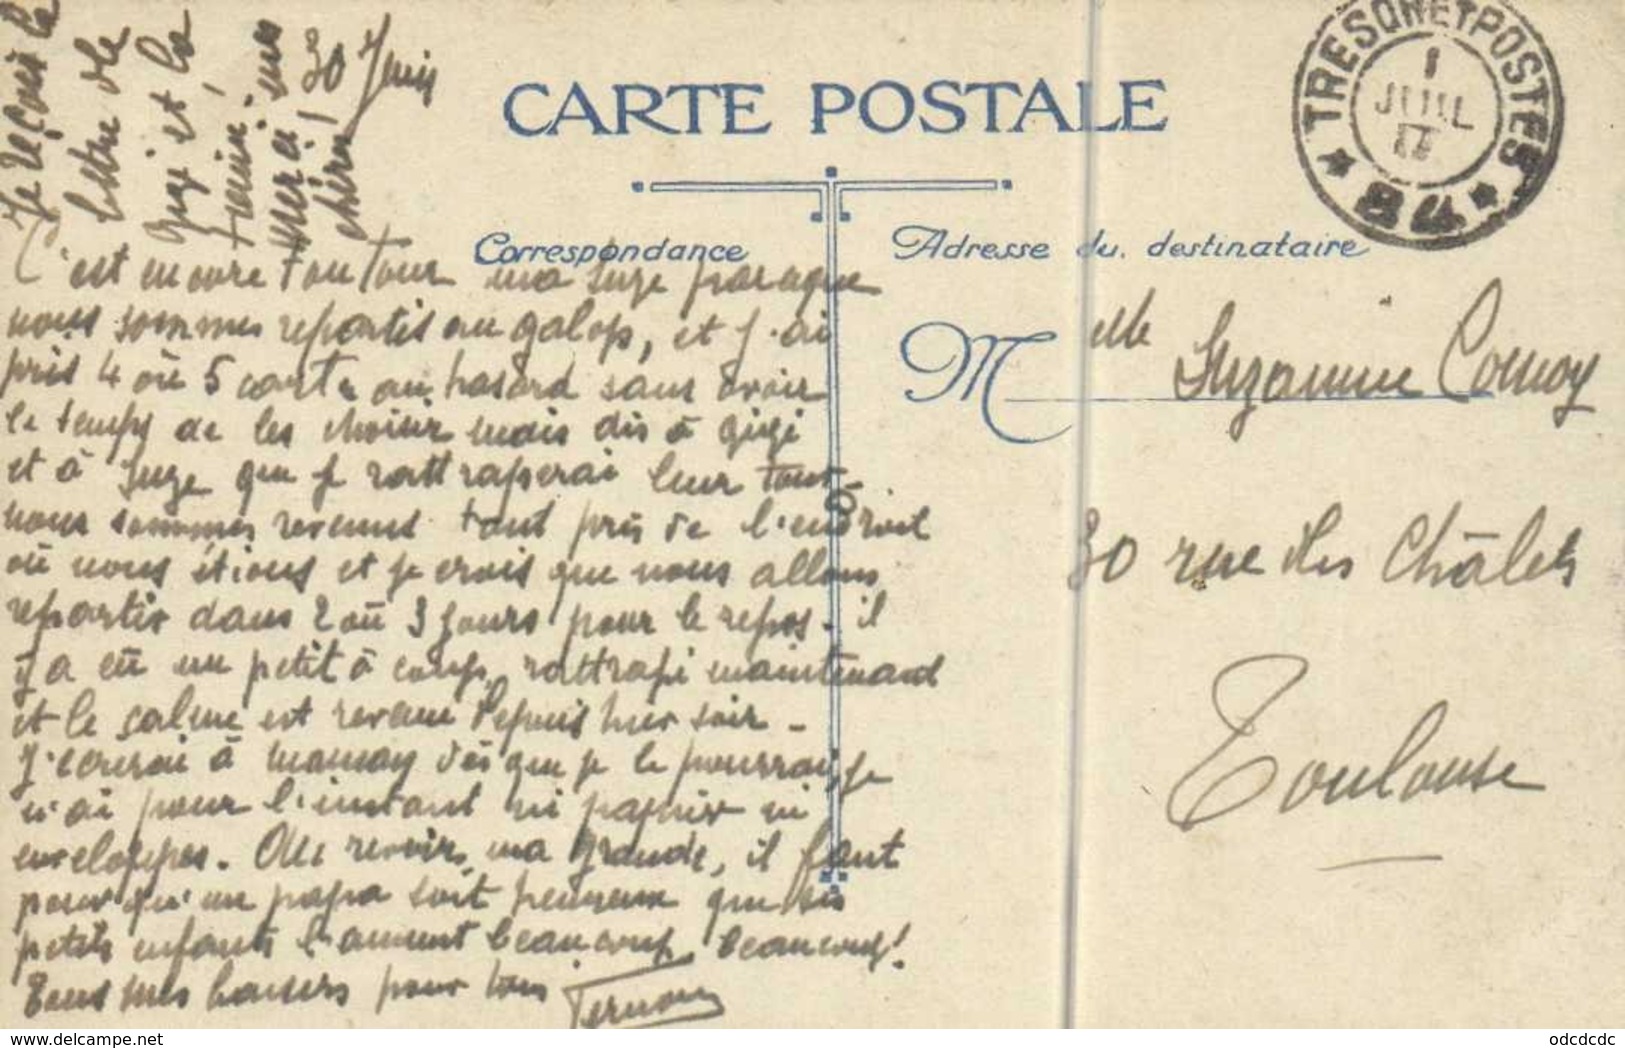 Je reçois la
lettre de
gigi et la
tienne
merci mes
chéris, 30 Juin
CARTE POSTALE
Correspondance
Adresse du destinataire
TRESOR ET POSTES
1
JUIL
17
* 84 *
C'est encore ton tour ma Suze parceque
nous sommes repartis au galop, et j'ai
pris 4 où 5 cartes au hasard sans avoir
le temps de les choisir mais dis à gigi
et à Suze que je rattraperai leur tout-
nous sommes revenus tout près de l'endroit
où nous étions et je crois que nous allons
repartir dans 2 où 3 jours pour le repos. il
y a eü un petit à coup, rattrapé maintenant
et le calme est revenu depuis hier soir -
J'écrirai à mamay dès que je le pourrai, je
n'ai pour l'instant ni papier ni
enveloppes. Au revoir ma grande, il faut
pour qu'un papa soit heureux que ses
petits enfants l'aiment beaucoup, beaucoup!
Tous mes baisers pour tous
Melle Suzanne
30 rue des Châlets
Toulouse
www.delcampe.net
odcdcdc